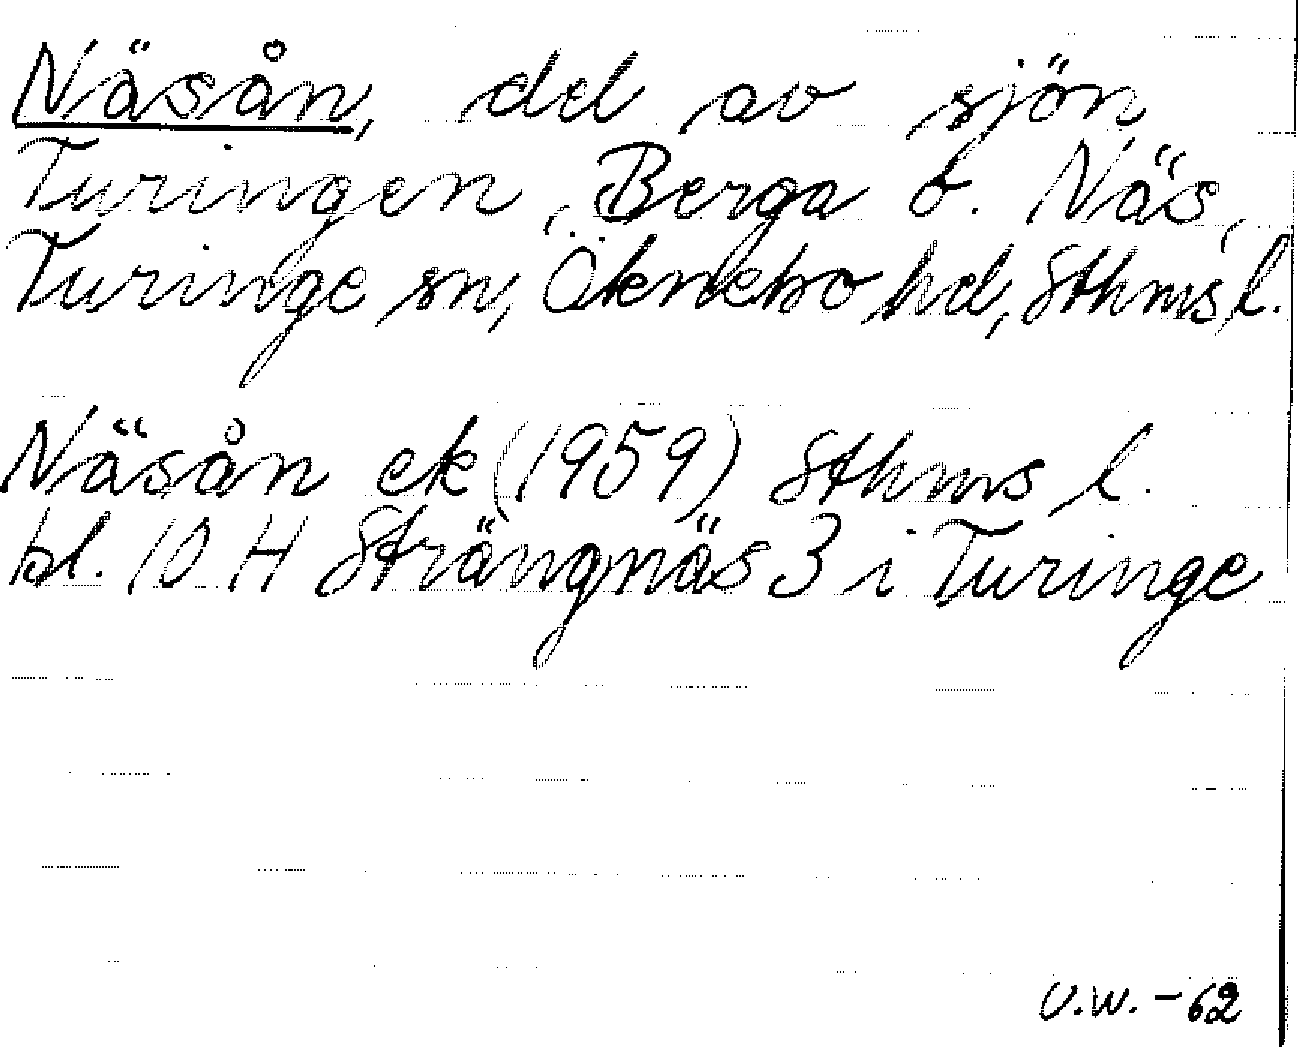 Näsån, del av sjön
Turingen, Berga o. Näs,
Turinge sn, Öknebo hd, Sthms l.
Näsån ek (1959) Sthms l.
bl. 10 H Strängnäs 3 i Turinge
U.W. - 62